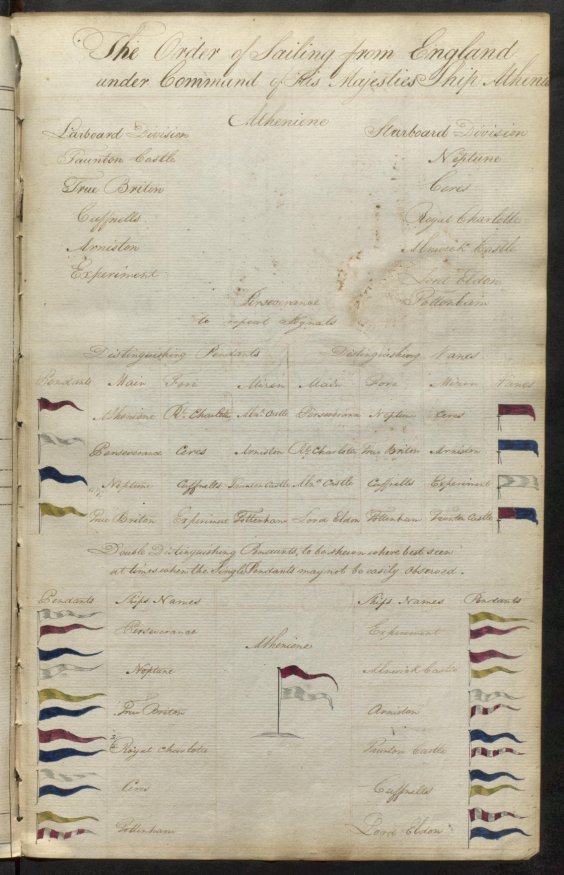 The Order of Sailing from England
under Command of His Majesties Ship Athenie
Atheniene
Larboard Division Starboard Division
Taunton Castle Neptune
True Briton Ceres
Cuffnells Royal Charlotte
Arniston Alnwick Castle
Experiment Lord Eldon
Perseverance Tottenham
to repeat Signals
Distinguishing Pendants Distinguishing Vanes
Pendants Main Fore Mizen Main Fore Mizen Vanes
Atheniene Rl. Charlotte Alnk Castle Perseverance Neptune Ceres
Perseverance Ceres Arniston Rl. Charlotte True Briton Arniston
Neptune Cuffnells Taunton Castle Alnk Castle Cuffnells Experiment
True Briton Experiment Tottenham Lord Eldon Tottenham Taunton Castle
Double Distinguishing Pendants, to be shewn where best seen
at times when the Single Pendants may not be easily observed.
Pendants Ships Names Ships Names Pendants
Perseverance Experiment
Atheniene
Neptune Alnwick Castle
True Briton Arniston
Royal Charlotte Taunton Castle
Ceres Cuffnells
Tottenham Lord Eldon